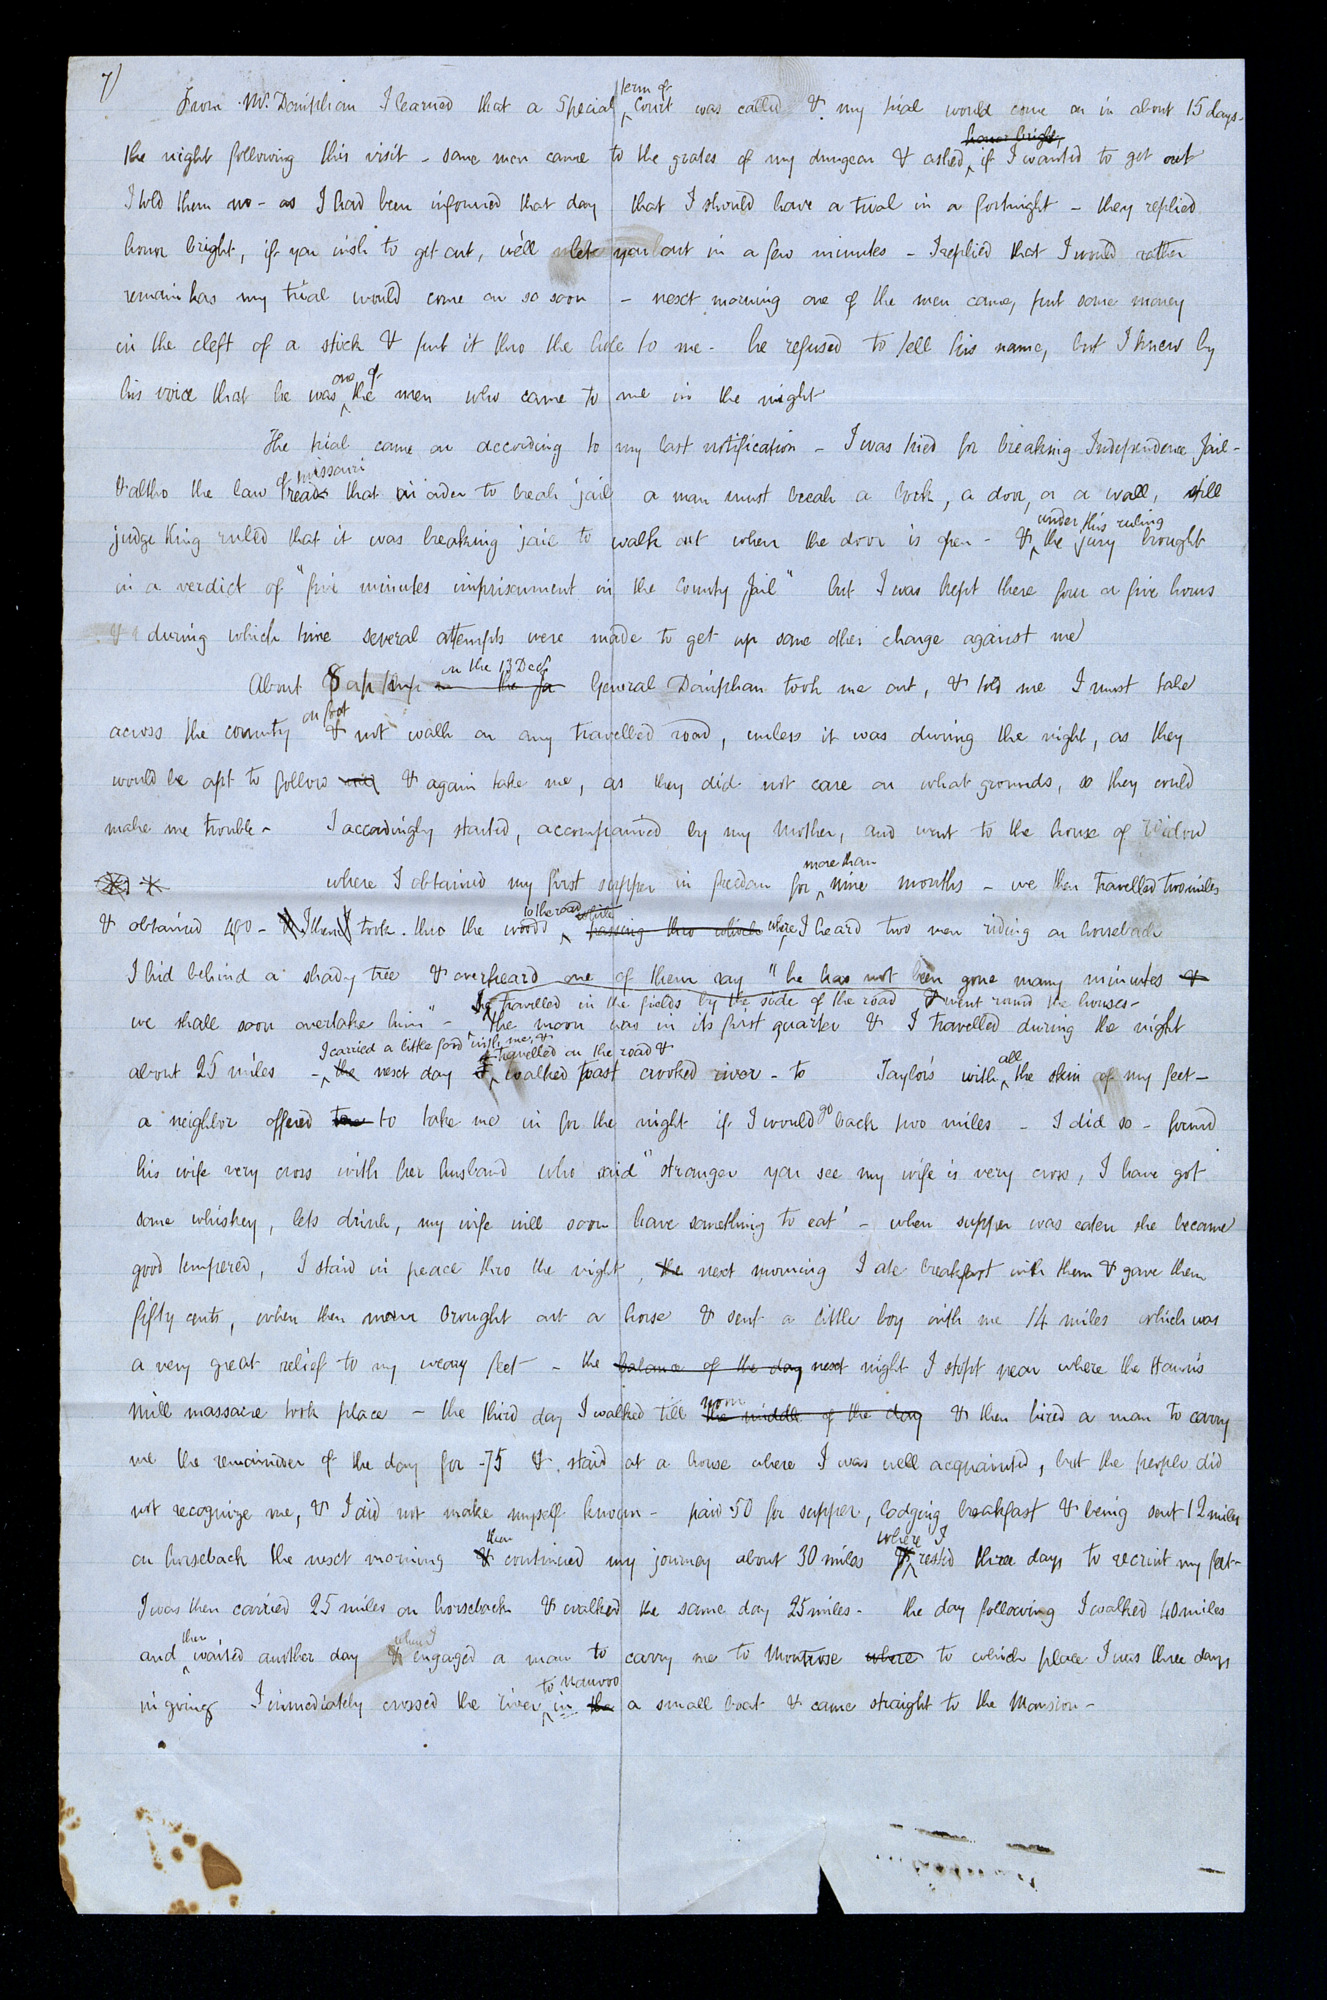 7)
From Mr. Doniphan I learned that a Special term of Court was called & my trial would come on in about 15 days-
the night following this visit - some men came to the grates of my dungeon & asked, honor bright, if I wanted to get out
I told them no - as I had been informed that day that I should have a trial in a fortnight - they replied
honor bright, if you wish to get out, we'll let you out in a few minutes - I replied that I would rather
remain as my trial would come on so soon - next morning one of the men came, put some money
in the cleft of a stick & put it thro the hole to me - he refused to tell his name, but I knew by
his voice that he was one of the men who came to me in the night
The trial came on according to my last notification - I was tried for breaking Independence Jail -
& altho the law of Missouri reads that in order to break jail, a man must break a lock, a door, or a wall, still
judge King ruled that it was breaking jail to walk out when the door is open - & under this ruling the jury brought
in a verdict of "five minutes imprisonment in the County Jail" but I was kept there four or five hours
& during which time several attempts were made to get up some other charge against me
About 8 on the 13 Decr in the General Doniphan took me out, & told me I must take
across the country on foot & not walk on any travelled road, unless it was during the night, as they
would be apt to follow & again take me, as they did not care on what grounds, so they could
make me trouble - I accordingly started, accompanied by my Mother, and went to the house of Widow
where I obtained my first supper in freedom for more than nine months - we then travelled two miles
& obtained I then took thro the woods to the road while passing thro which where I heard two men riding on horseback
I hid behind a shady tree & overheard one of them say "he has not been gone many minutes &
we shall soon overtake him" - I travelled in the fields by the side of the road & went round the houses -
the moon was in its first quarter & I travelled during the night
about 25 miles - I carried a little food with me, & the next day I travelled on the road & walked past crooked river - to Taylor's with all the skin off my feet -
a neighbor offered to take me in for the night if I would go back two miles - I did so - found
his wife very cross with her husband who said "stranger you see my wife is very cross, I have got
some whiskey, lets drink, my wife will soon have something to eat' - when supper was eaten she became
good tempered, I staid in peace thro the night, the next morning I ate breakfast with them & gave them
fifty cents, when then man brought out a horse & sent a little boy with me 14 miles which was
a very great relief to my weary feet - the balance of the day next night I stopt near where the Hawn's
mill massacre took place - the third day I walked till noon the middle of the day & then hired a man to carry
me the remainder of the day for -75 & staid at a house where I was well acquainted, but the people did
not recognize me, & I did not make myself known - paid .50 for supper, lodging breakfast & being sent 12 miles
on horseback the next morning & then continued my journey about 30 miles & where I rested three days to recruit my feet -
I was then carried 25 miles on horseback & walked the same day 25 miles - the day following I walked 40 miles
and then waited another day & when I engaged a man to carry me to Montrose where to which place I was three days
in going I immediately crossed the river to Nauvoo in the a small boat & came straight to the Mansion -